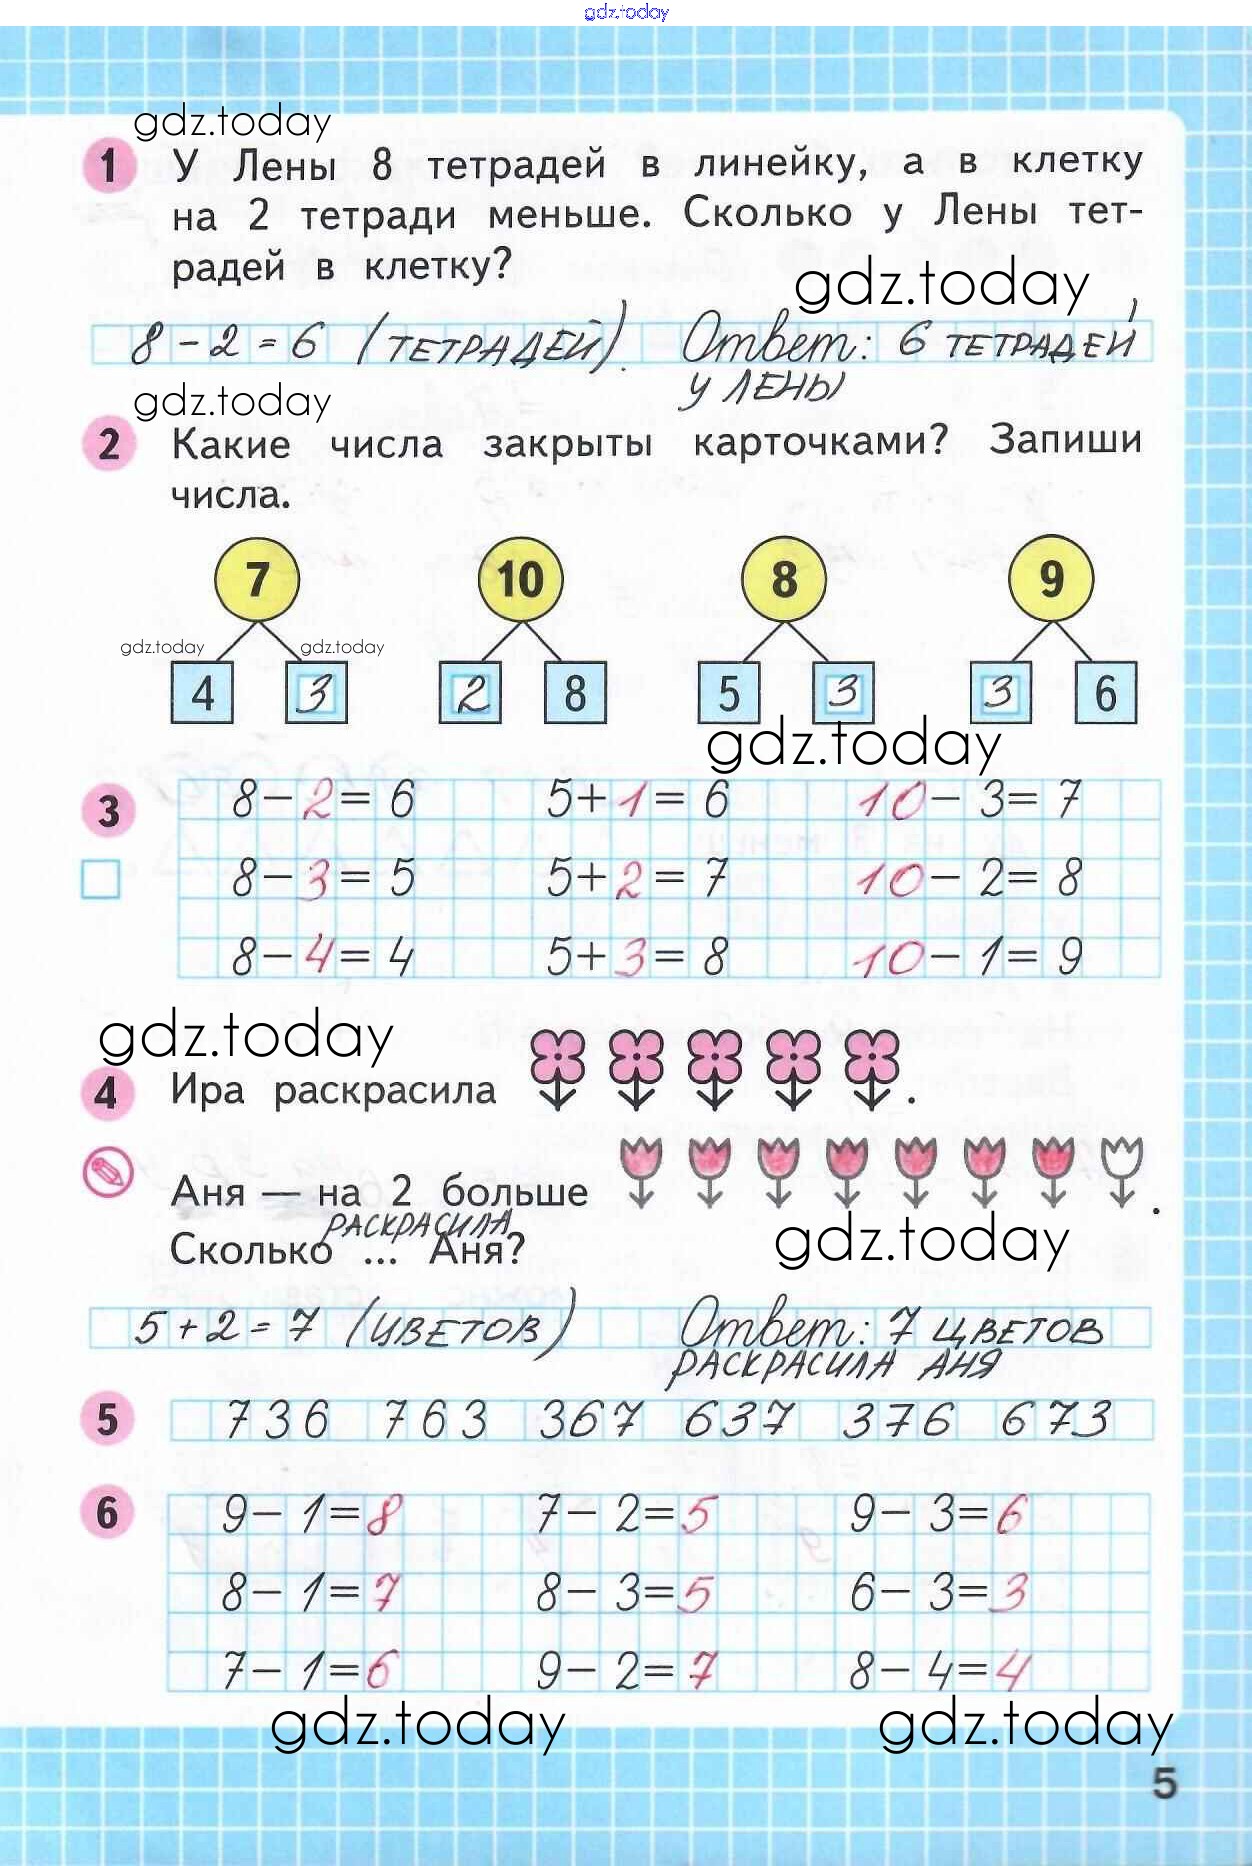 gdz.today
gdz.today
1 У Лены 8 тетрадей в линейку, а в клетку
на 2 тетради меньше. Сколько у Лены тет-
радей в клетку?
gdz.today
8 - 2 = 6 (ТЕТРАДЕЙ). Ответ: 6 ТЕТРАДЕЙ
У ЛЕНЫ
gdz.today
2 Какие числа закрыты карточками? Запиши
числа.
7 10 8 9
gdz.today gdz.today
4 3 2 8 5 3 3 6
gdz.today
3 8 - 2 = 6 5 + 1 = 6 10 - 3 = 7
8 - 3 = 5 5 + 2 = 7 10 - 2 = 8
8 - 4 = 4 5 + 3 = 8 10 - 1 = 9
gdz.today
4 Ира раскрасила .
Аня — на 2 больше .
РАСКРАСИЛА
gdz.today
Сколько ... Аня?
5 + 2 = 7 (ЦВЕТОВ) Ответ: 7 ЦВЕТОВ
РАСКРАСИЛА АНЯ
5 736 763 367 637 376 673
6 9 - 1 = 8 7 - 2 = 5 9 - 3 = 6
8 - 1 = 7 8 - 3 = 5 6 - 3 = 3
7 - 1 = 6 9 - 2 = 7 8 - 4 = 4
gdz.today gdz.today
5